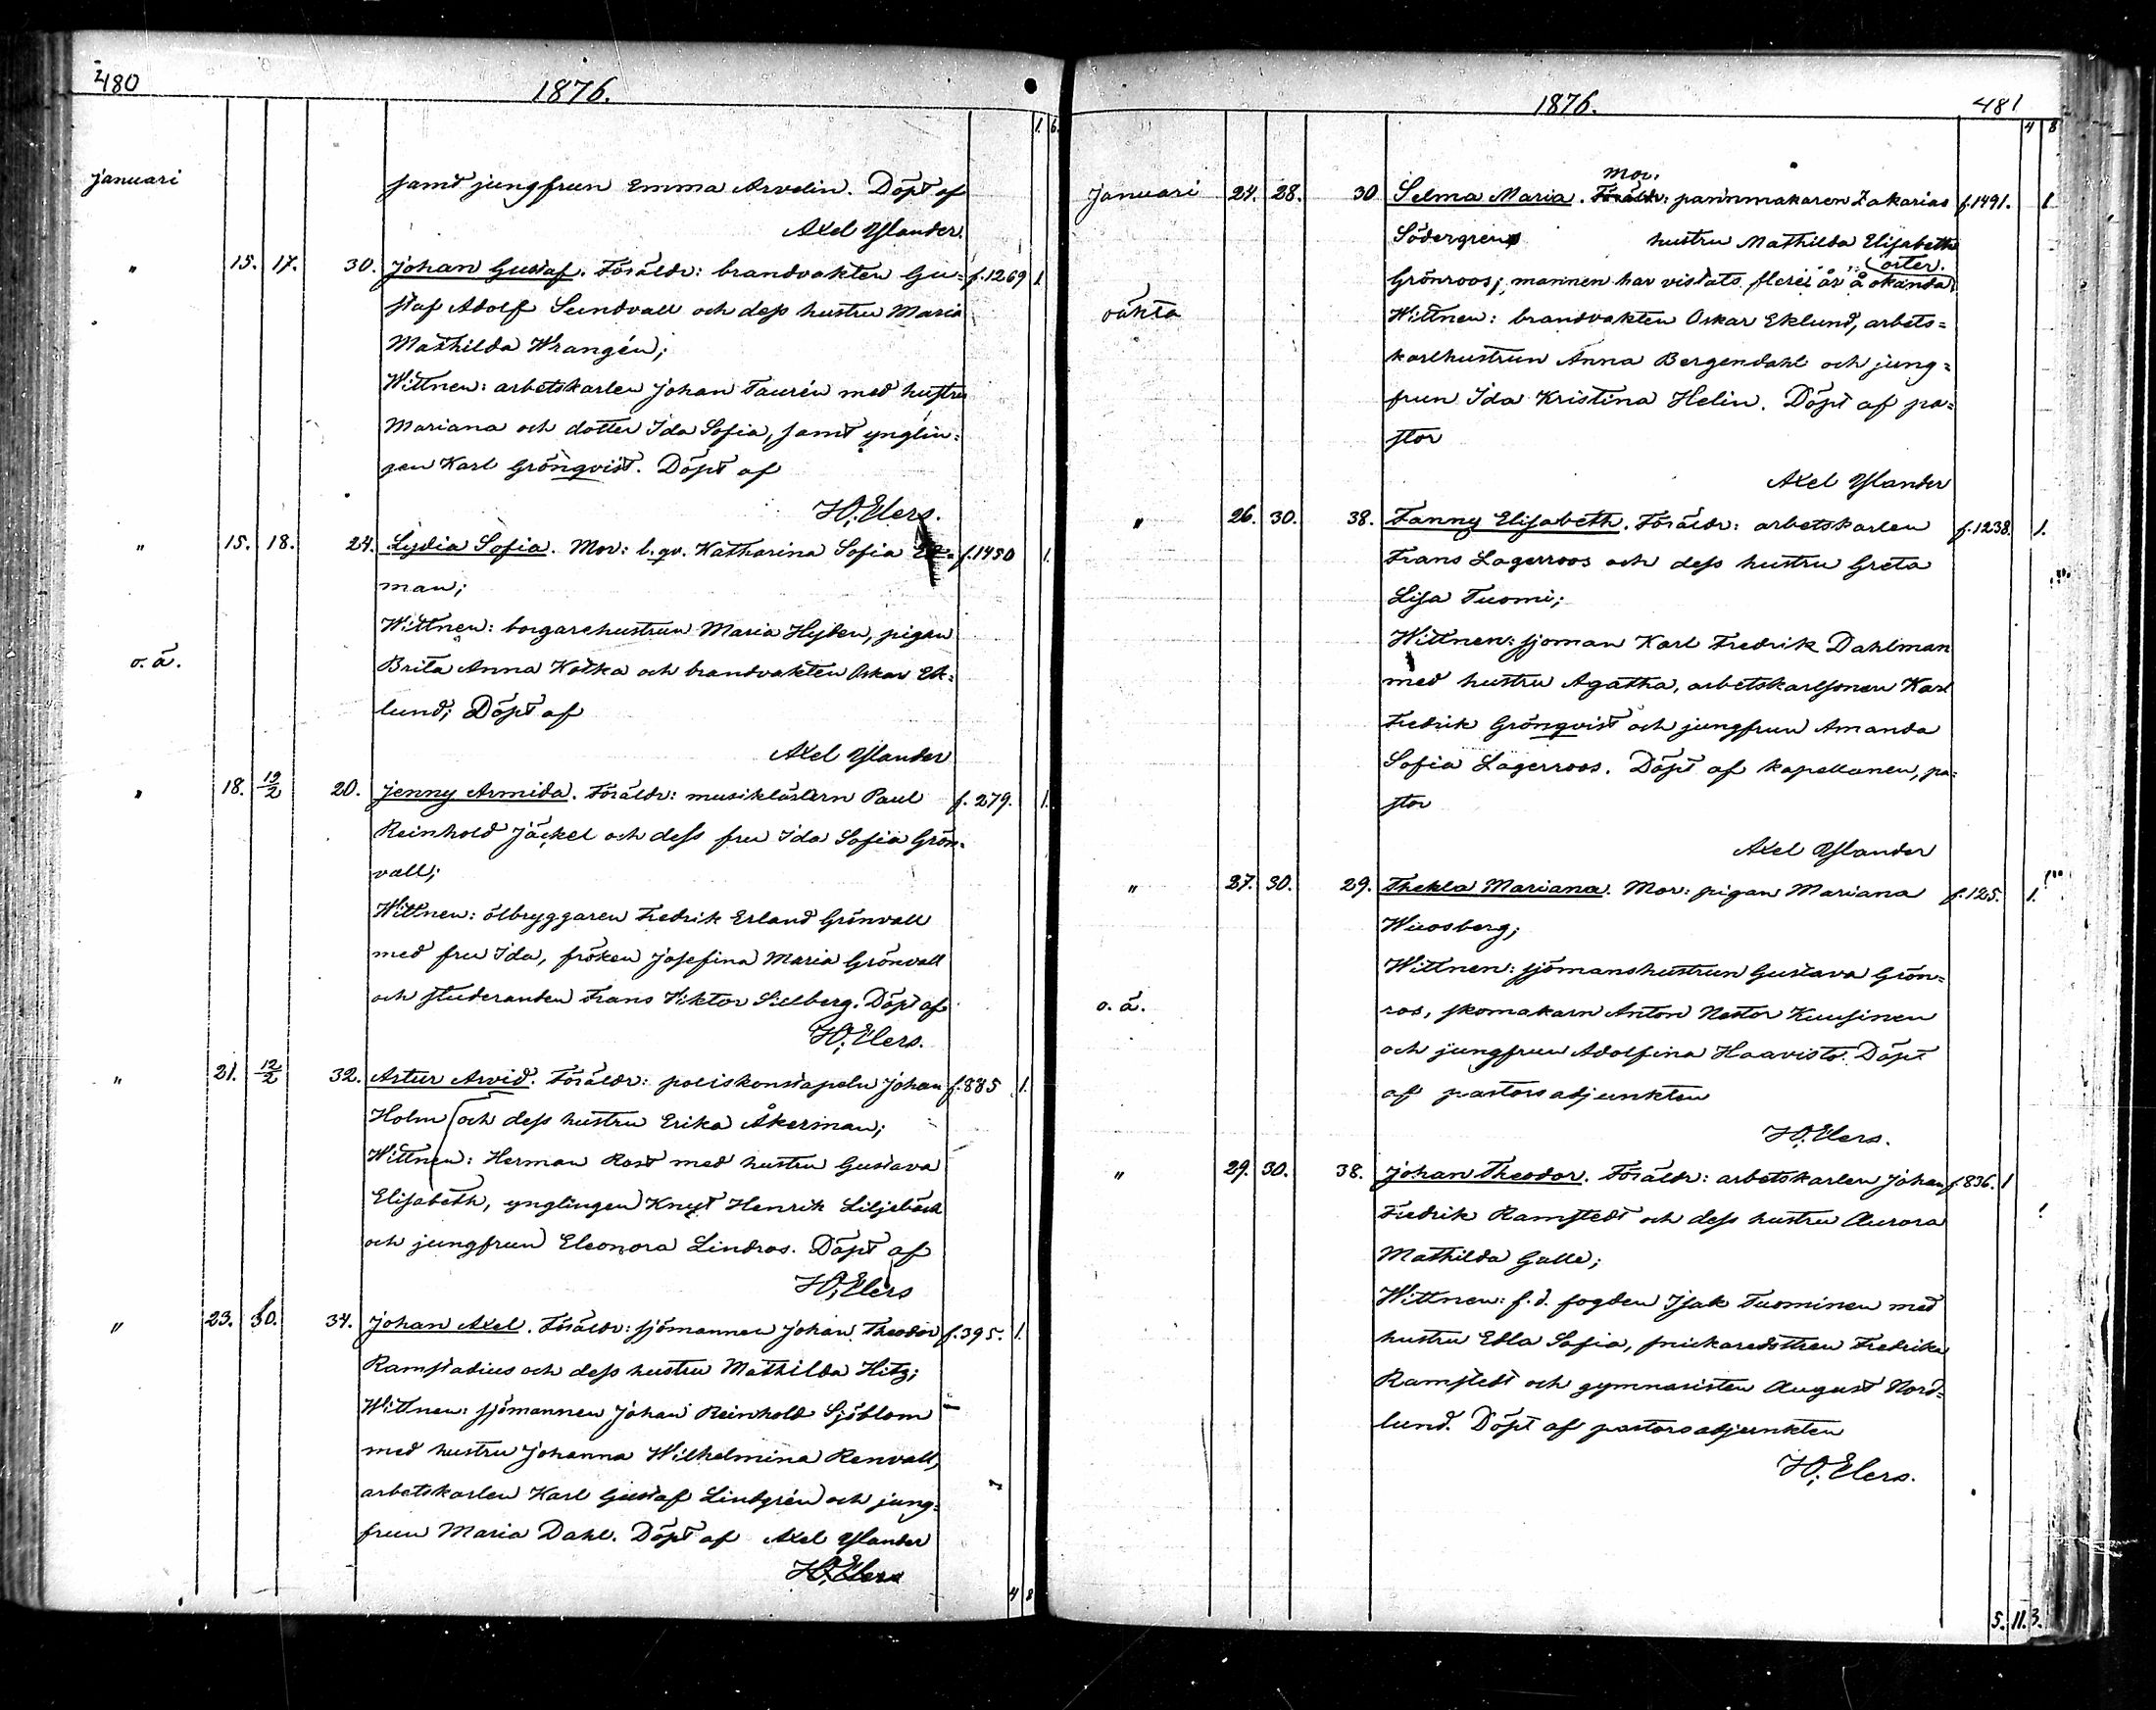 480
1876.
1. 6.
Januari
samt jungfrun Emma Arvelin. Döpt af
Axel Ylander.
" 15. 17. 30. Johan Gustaf. Föräldr: brandvakten Gu= f.1269 1
staf Adolf Sundvall och dess hustru Maria
Mathilda Wrangén;
Wittnen: arbetskarlen Johan Taurén med hustru
Mariana och dotter Ida Sofia, samt ynglin=
gen Karl Grönqvist. Döpt af
H.O. Elers.
" 15. 18. 24. Lydia Sofia. Mor: l.qv. Katharina Sofia f.1450 1.
man;
Wittnen: borgarehustrun Maria Hyden, pigan
o.ä. Brita Anna Kotka och brandvakten Oskar Ek=
lund; Döpt af
Axel Ylander
" 18. 12/2 20. Jenny Armida. Föräldr: musiklärarn Paul f. 279. 1.
Reinhold Jäckel och dess fru Ida Sofia Grön=
vall;
Wittnen: ölbryggaren Fredrik Erland Grönvall
med fru Ida, fröken Josefina Maria Grönvall
och studeranden Frans Viktor Sielberg. Döpt af
H.O. Elers.
" 21. 12/2 32. Artur Arvid. Föräldr: poliskonstapeln Johan f.885 1.
Holm och dess hustru Erika Åkerman;
Wittnen: Herman Rost med hustru Gustava
Elisabeth, ynglingen Knut Henrik Liljebäck
och jungfrun Eleonora Lindros. Döpt af
H.O. Elers
" 23. 30. 34. Johan Axel. Föräldr: sjömannen Johan Theodor f.395. 1.
Ramstadius och dess hustru Mathilda Hitz;
Wittnen: sjömannen Johan Reinhold Sjöblom
med hustru Johanna Wilhelmina Renvall,
arbetskarlen Karl Gustaf Lindgrén och jung=
frun Maria Dahl. Döpt af Axel Ylander
H.O. Elers
4 8
1876.
481
4 8
Mor.
Januari 24. 28. 30 Selma Maria. Föräldr: pannmakaren Zakarias f.1491. 1
Södergrens hustru Mathilda Elisabeth
orter.
Grönroos; mannen har vistats flere år å okända
oäkta Wittnen: brandvakten Oskar Eklund, arbets=
karlhustrun Anna Bergendahl och jung=
frun Ida Kristina Helin. Döpt af pa=
stor
Axel Ylander
" 26. 30. 38. Fanny Elisabeth. Föräldr: arbetskarlen f.1238. 1.
Frans Lagerroos och dess hustru Greta
Lisa Tuomi;
Wittnen: sjöman Karl Fredrik Dahlman
med hustru Agatha, arbetskarlsonen Karl
Fredrik Grönqvist och jungfrun Amanda
Sofia Lagerroos. Döpt af kapellanen, pa=
stor
Axel Ylander
" 27. 30. 29. Thekla Mariana. Mor: pigan Mariana f.125. 1.
Wuosberg;
Wittnen: sjömanshustrun Gustava Grön=
o.ä. ros, skomakarn Anton Nestor Kuusinen
och jungfrun Adolfina Haavisto. Döpt
af pastorsadjunkten
H.O. Elers.
" 29. 30. 38. Johan Theodor. Föräldr: arbetskarlen Johan f.836. 1
Fredrik Ramstedt och dess hustru Aurora
Mathilda Galle;
Wittnen: f.d. fogden Isak Tuominen med
hustru Edla Sofia, snickaredottren Fredrika
Ramstedt och gymnasisten August Nord=
lund. Döpt af pastorsadjunkten
H.O. Elers.
5. 11. 3.